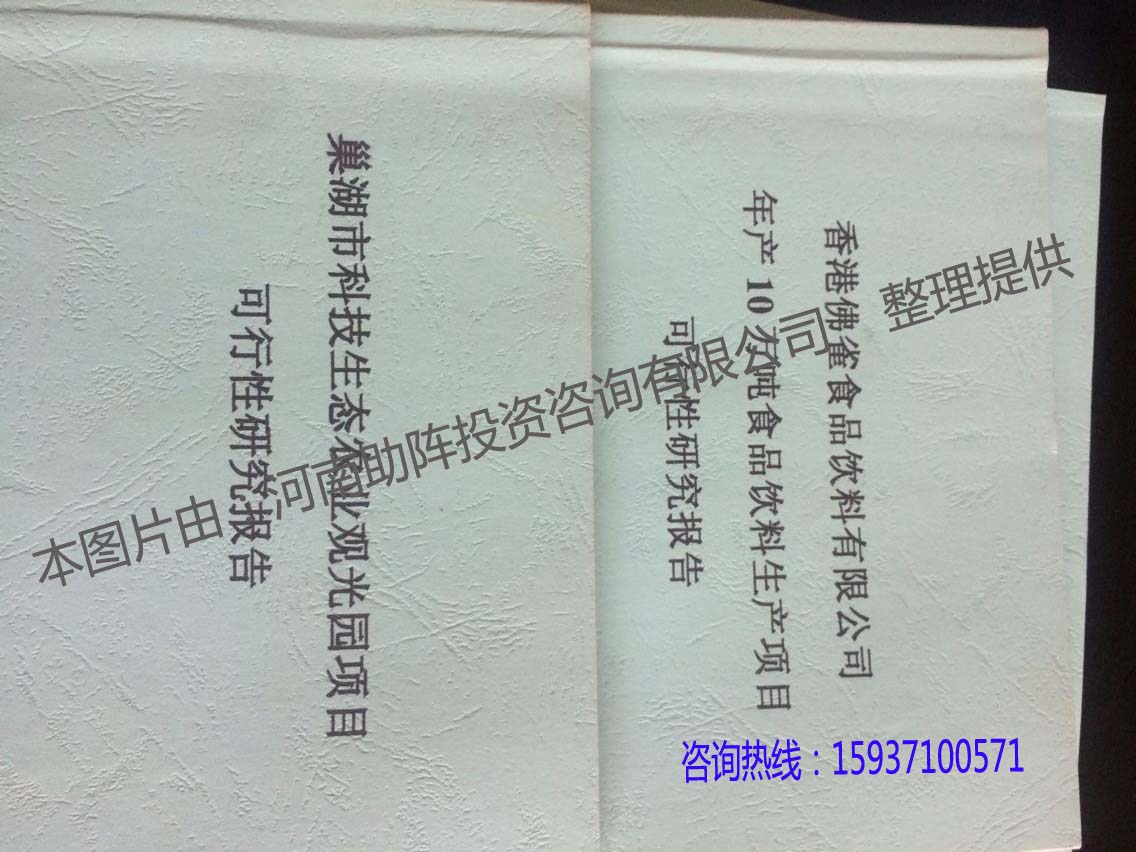 巢湖市科技生态农业观光园项目
可行性研究报告
香港佛雀食品饮料有限公司
年产10万吨食品饮料生产项目
可行性研究报告
本图片由 河南助阵投资咨询有限公司 整理提供
咨询热线：15937100571